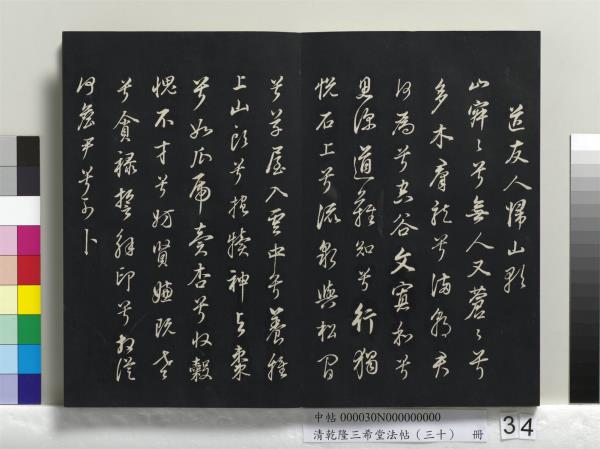 送友人歸山歌
山寂〻兮無人又蒼〻兮
多木群龍兮滿朝君
何為兮空谷文寡和兮
思深道難知兮行獨
悅石上兮流泉與松間
兮草屋入雲中兮養雞
上山頭兮抱犢神与棗
兮如瓜虎賣杏兮收穀
愧不才兮妨賢嫌既老
兮貪祿誓解印兮相從
何詹尹兮可卜
中帖 000030N000000000
清乾隆三希堂法帖（三十） 冊
34